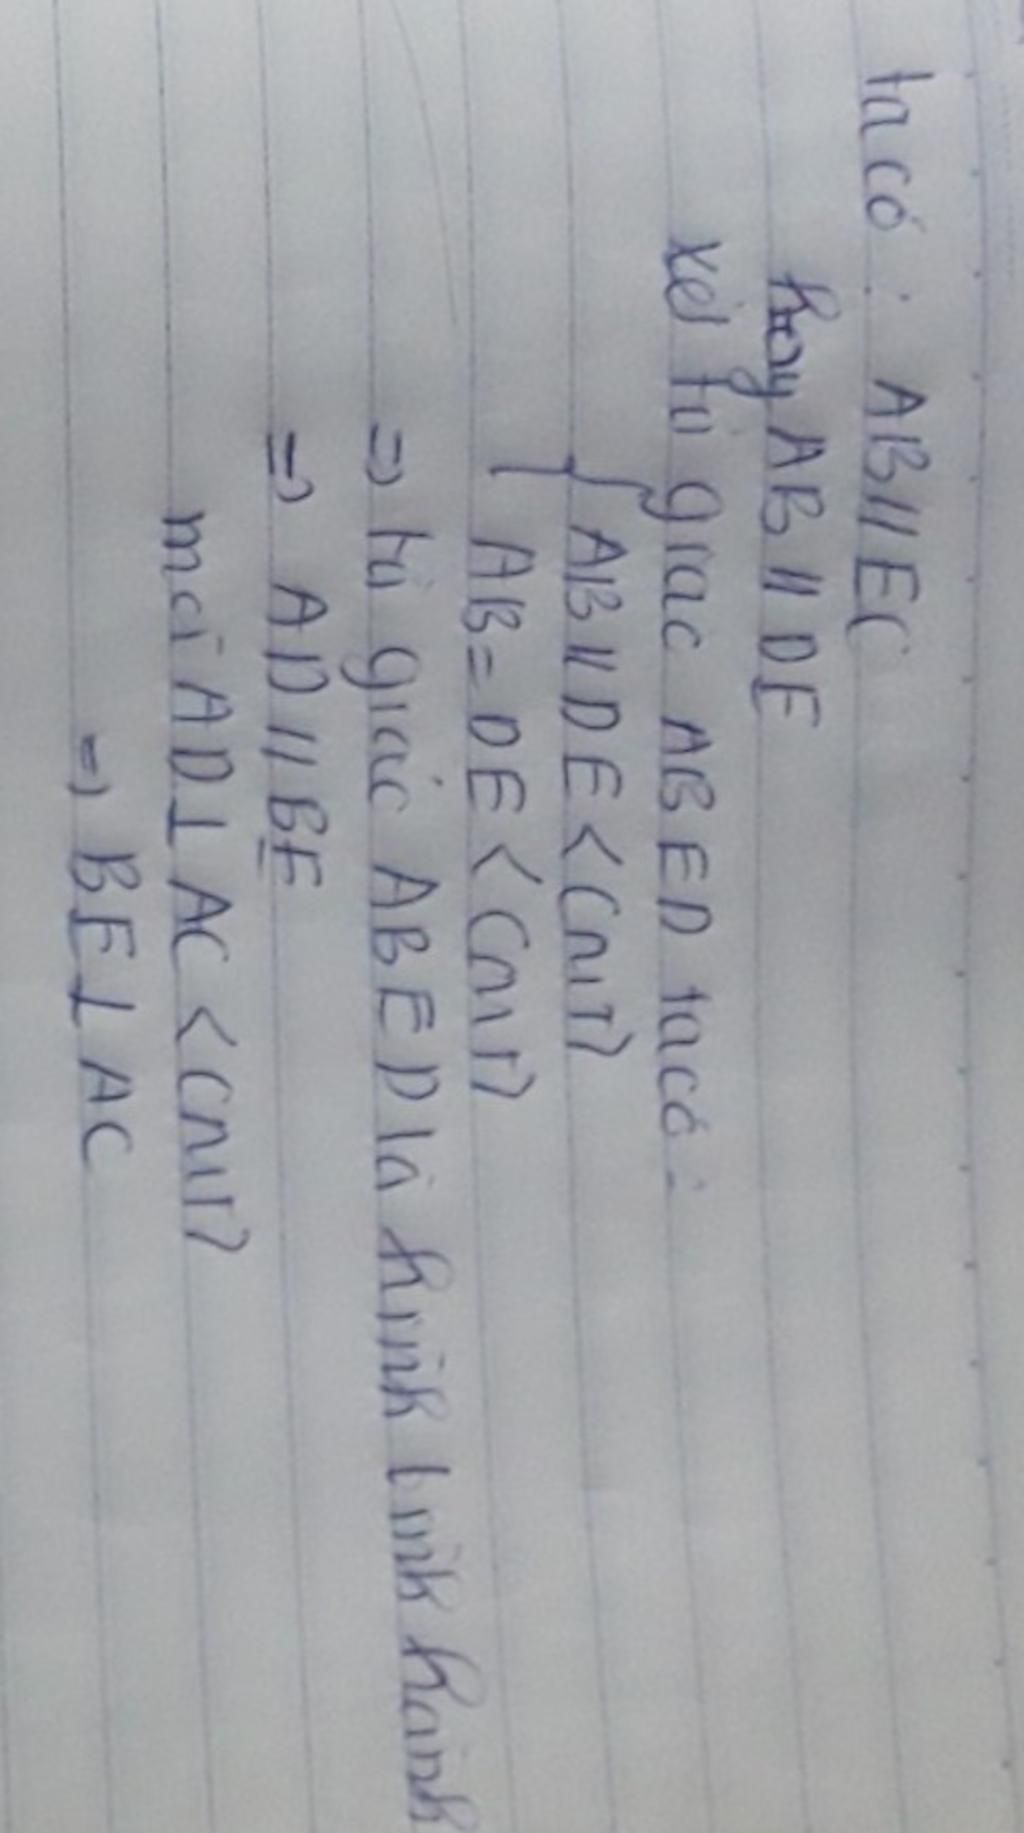 ta có : AB // EC
hay AB // DE
xét tứ giác ABED ta có :
{ AB // DE < cmt >
AB = DE < cmt >
=> tứ giác ABED là hình bình hành
=> AD // BE
mà AD ⊥ AC < cmt >
=> BE ⊥ AC